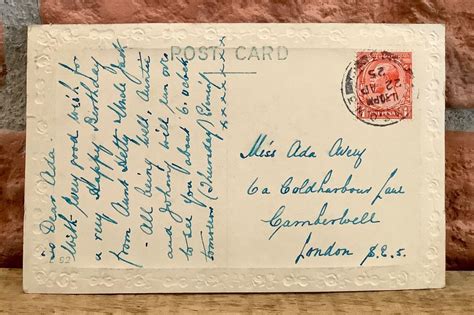 POST CARD
To Dear Ada.
With every good wish for
a very Happy Birthday
from Aunt Hetty & Uncle Jack
All being well, Auntie
and Johnny will run over
to see you about 6. o'clock
tomorrow (Thursday)
xxxxxxx
22 AP
25
Miss Ada Avey
6a Coldharbour Lane
Camberwell
London S.E.5.